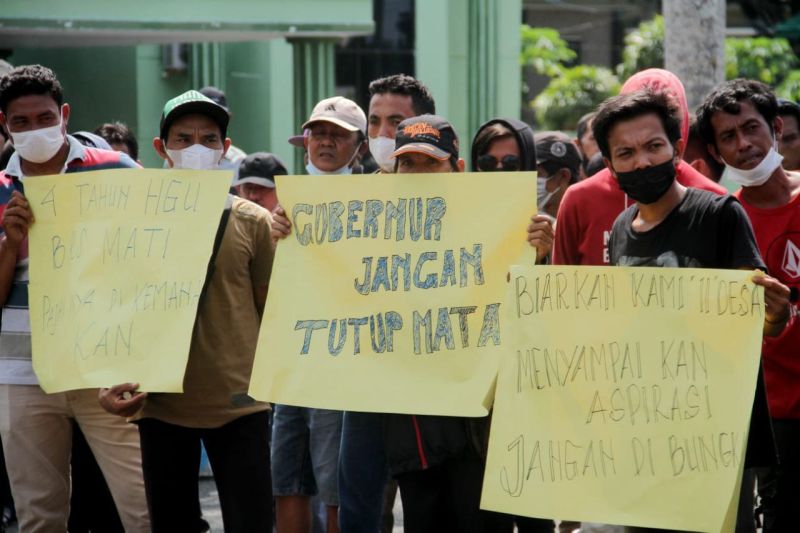 4 TAHUN HGU
MATI
DI KEMANA
KAN
GUBERNUR
JANGAN
TUTUP MATA
BIARKAN KAMI "11" DESA
MENYAMPAI KAN
ASPIRASI
JANGAN DI BUNGK